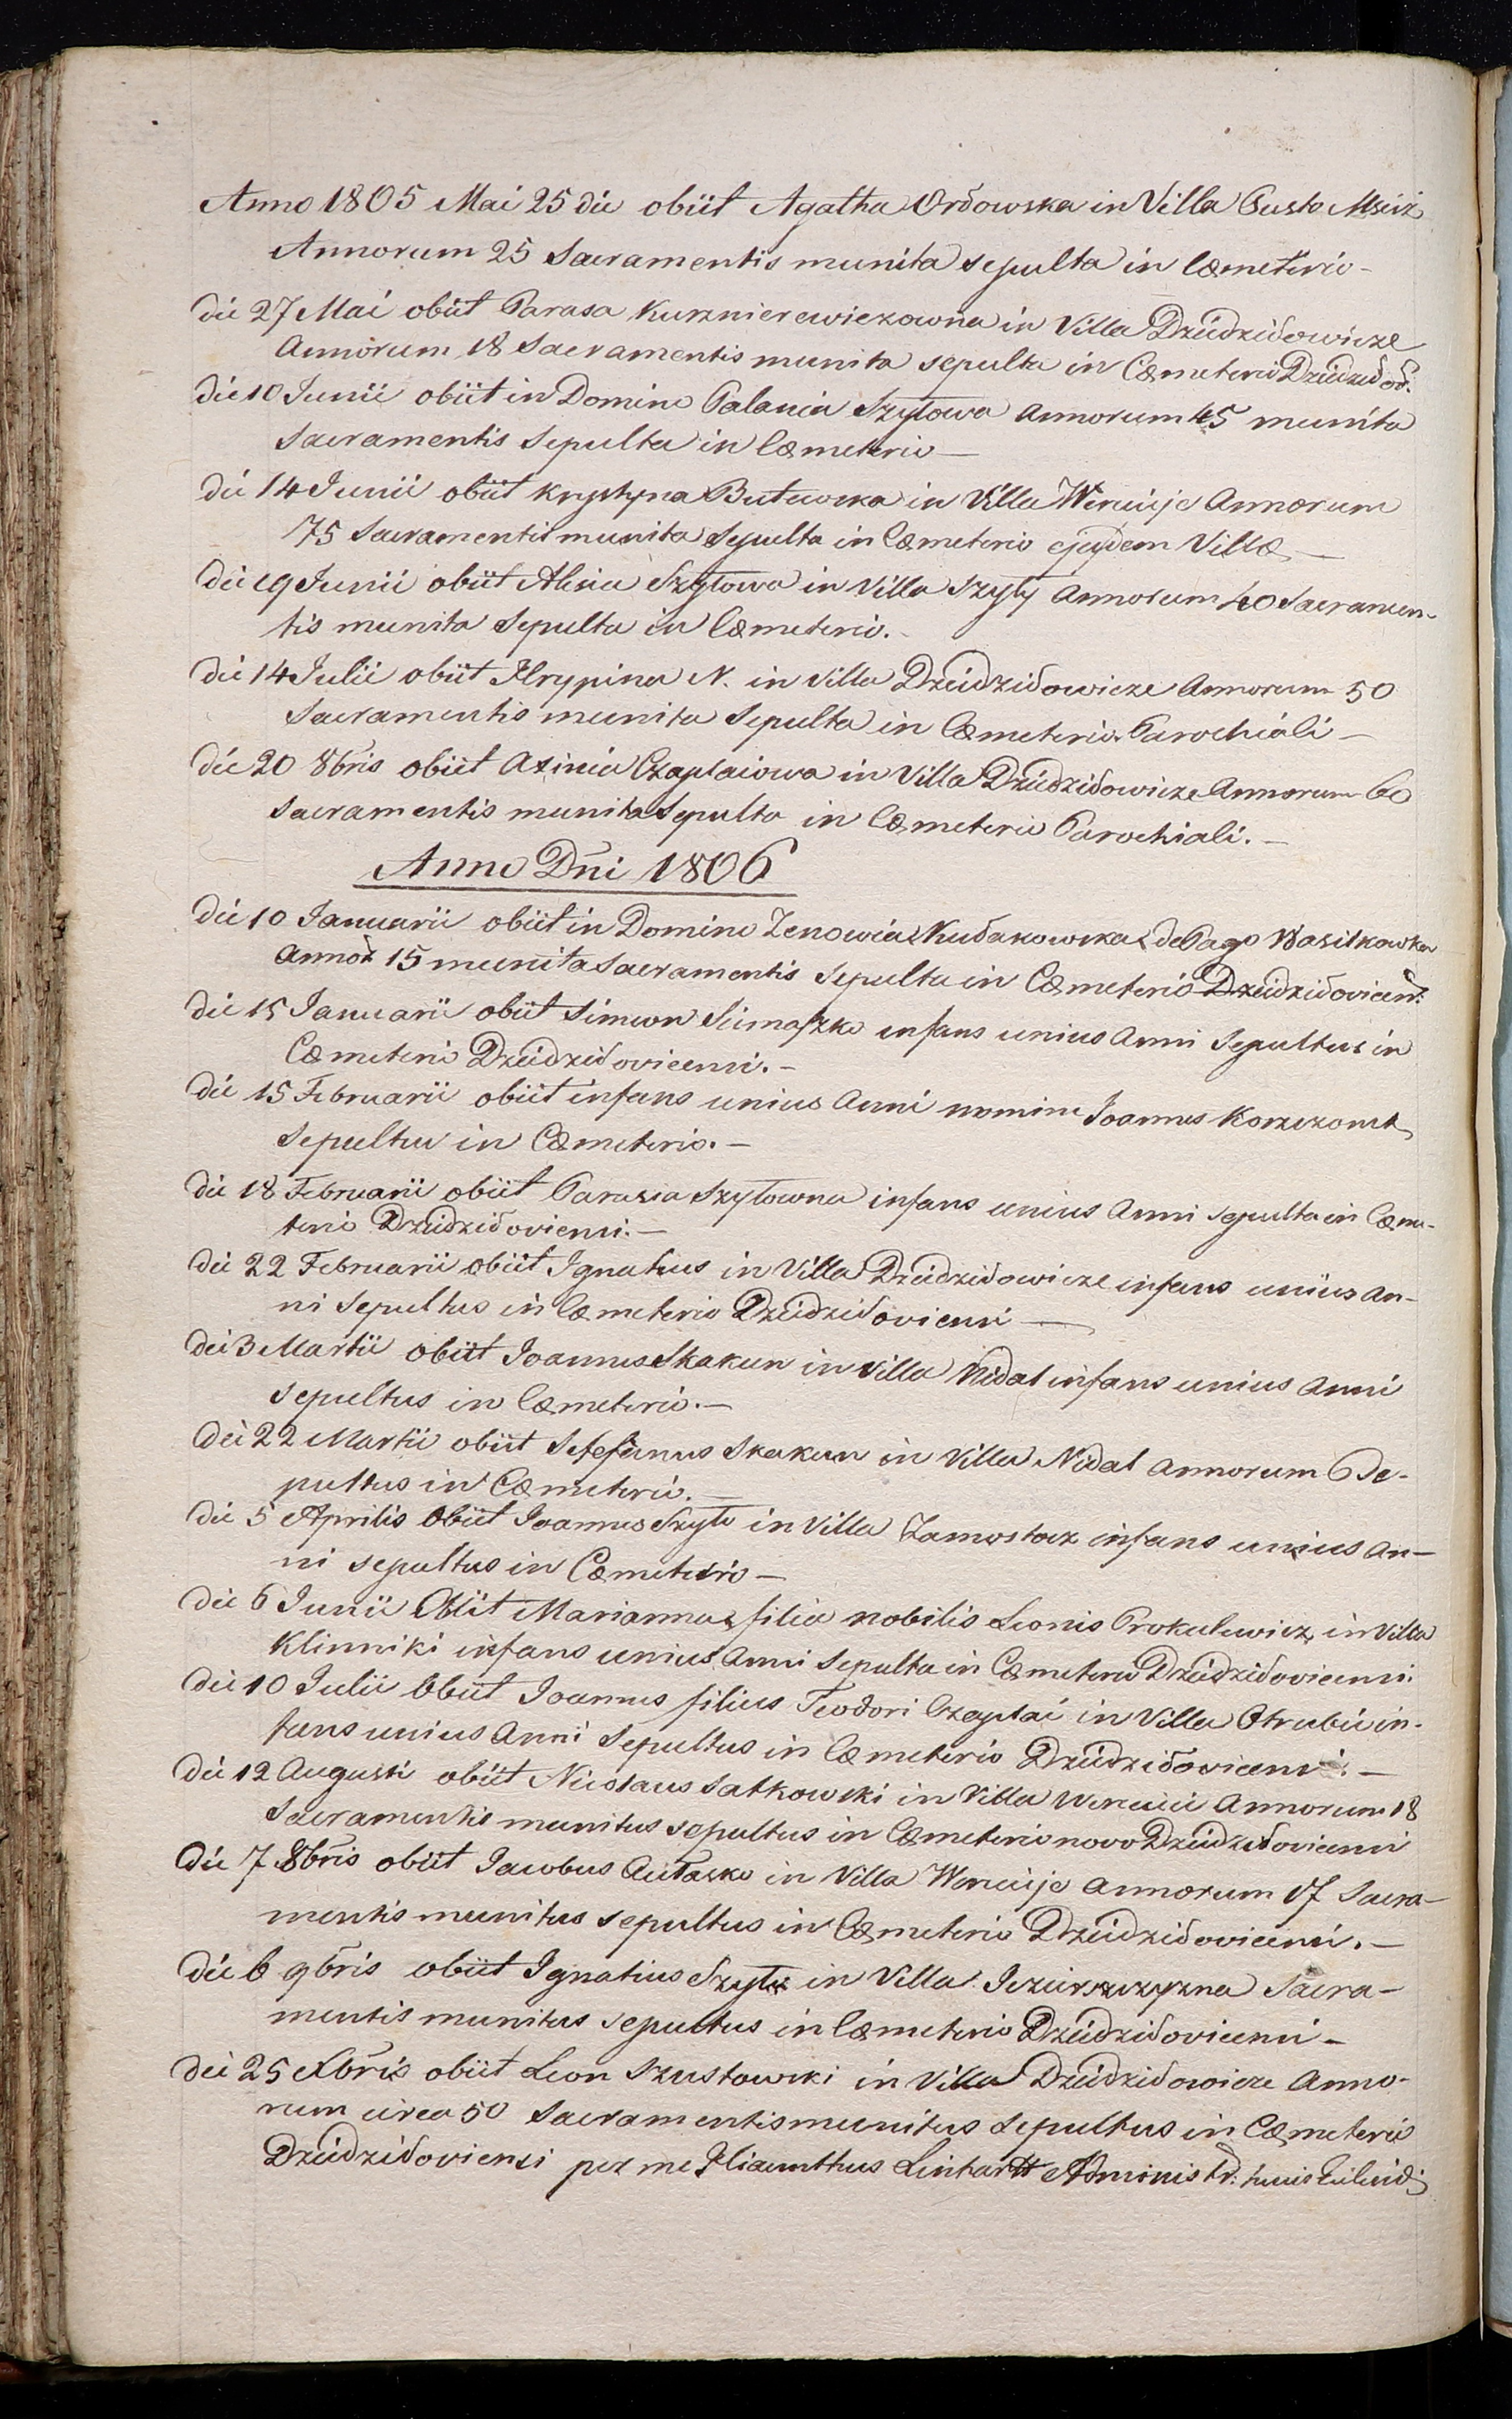 Anno 1805 Mai 25 die obiit Agatha Ordowska in Villa Pusto Mśc
Annorum 25 Sacramentis munita sepulta in Cœmeterio -
die 27 Mai obiit Parasa Kurznierewiczowna in Villa Dziedzidowicze
Annorum 18 Sacramentis munita sepulta in Cœmeterio Dziedzidov:
die 10 Junii obiit in Domino Palania Szytowa annorum 45 munita
Sacramentis Sepulta in Cœmeterio —
die 14 Junii obiit Krystyna Butewska in Villa Wereiije Annorum
75 Sacramentis munita Sepulta in Cœmeterio ejusdem Villæ —
die 19 Junii obiit Alesia Szytowa in Villa Szyty Annorum 40 Sacramen-
tis munita Sepulta in Cœmeterio. -
die 14 Julii obiit Hrypina N. in Villa Dziedzidowicze Annorum 50
Sacramentis munita Sepulta in Cœmeterio Parochiali —
die 20 8bris obiit Axinia Czaplaiowa in Villa Dziedzidowicze Annorum 60
Sacramentis munita Sepulta in Cœmeterio Parochiali. —
Anno Dni 1806
die 10 Januarii obiit in Domino Zenowia Kudakowska de Pago Wasilkowka
Annor 15 munita Sacramentis Sepulta in Cœmeterio Dziedzidovicen:
die 15 Januarii obiit Simeon Siemaszko infans unius Anni Sepultus in
Cœmeterio Dziedzidovicensi. -
die 15 Februarii obiit infans unius Anni nomine Joannes
Sepultus in Cœmeterio. —
die 18 Februarii obiit Parasia Szytowna infans unius Anni sepulta in Cœme-
terio Dziedzidoviensi. —
die 22 Februarii obiit Ignatius in Villa Dziedzidowicze infans unius an-
ni Sepultus in Cœmeterio Dziedzidoviensi —
die 3 Martii obiit Joannes Skakun in Villa Nidal infans unius Anni
sepultus in Cœmeterio. —
die 22 Martii obiit Stefanus Skakun in Villa Nidal annorum 6 Se-
pultus in Cœmeterio. —
die 5 Aprilis Obiit Joannes Szyto in Villa Zamostocz infans unius an-
ni sepultus in Cœmeterio —
die 6 Junii Obiit Marianna filia nobilis Leonis Prokulewicz in Villa
Klinniki infans unius Anni Sepulta in Cœmeterio Dziedzidovicensi.
die 10 Julii Obiit Joannes filius Teodori Czaplai in Villa Otrubie in-
fans unius Anni Sepultus in Cœmeterio Dziedzidovicensi. —
die 12 Augusti obiit Nicolaus Satkowski in Villa Wereiie Annorum 18
Sacramentis munitus sepultus in Cœmeterio novo Dziedzidovicensi
die 7 8bris obiit Jacobus Autasko in Villa Wereiije Annorum 17 Sacra-
mentis munitus sepultus in Cœmeterio Dziedzidovicensi. —
die 6 9bris obiit Ignatius Szyto in Villa Sacra-
mentis munitus sepultus in Cœmeterio Dziedzidovicensi -
die 25 Xbris obiit Leon Szustowski in Villa Dziedzidowicze Anno-
rum circa 50 Sacramentis munitus sepultus in Cœmeterio
Dziedzidoviensi per me Hiacinthus Linhartt Administr: